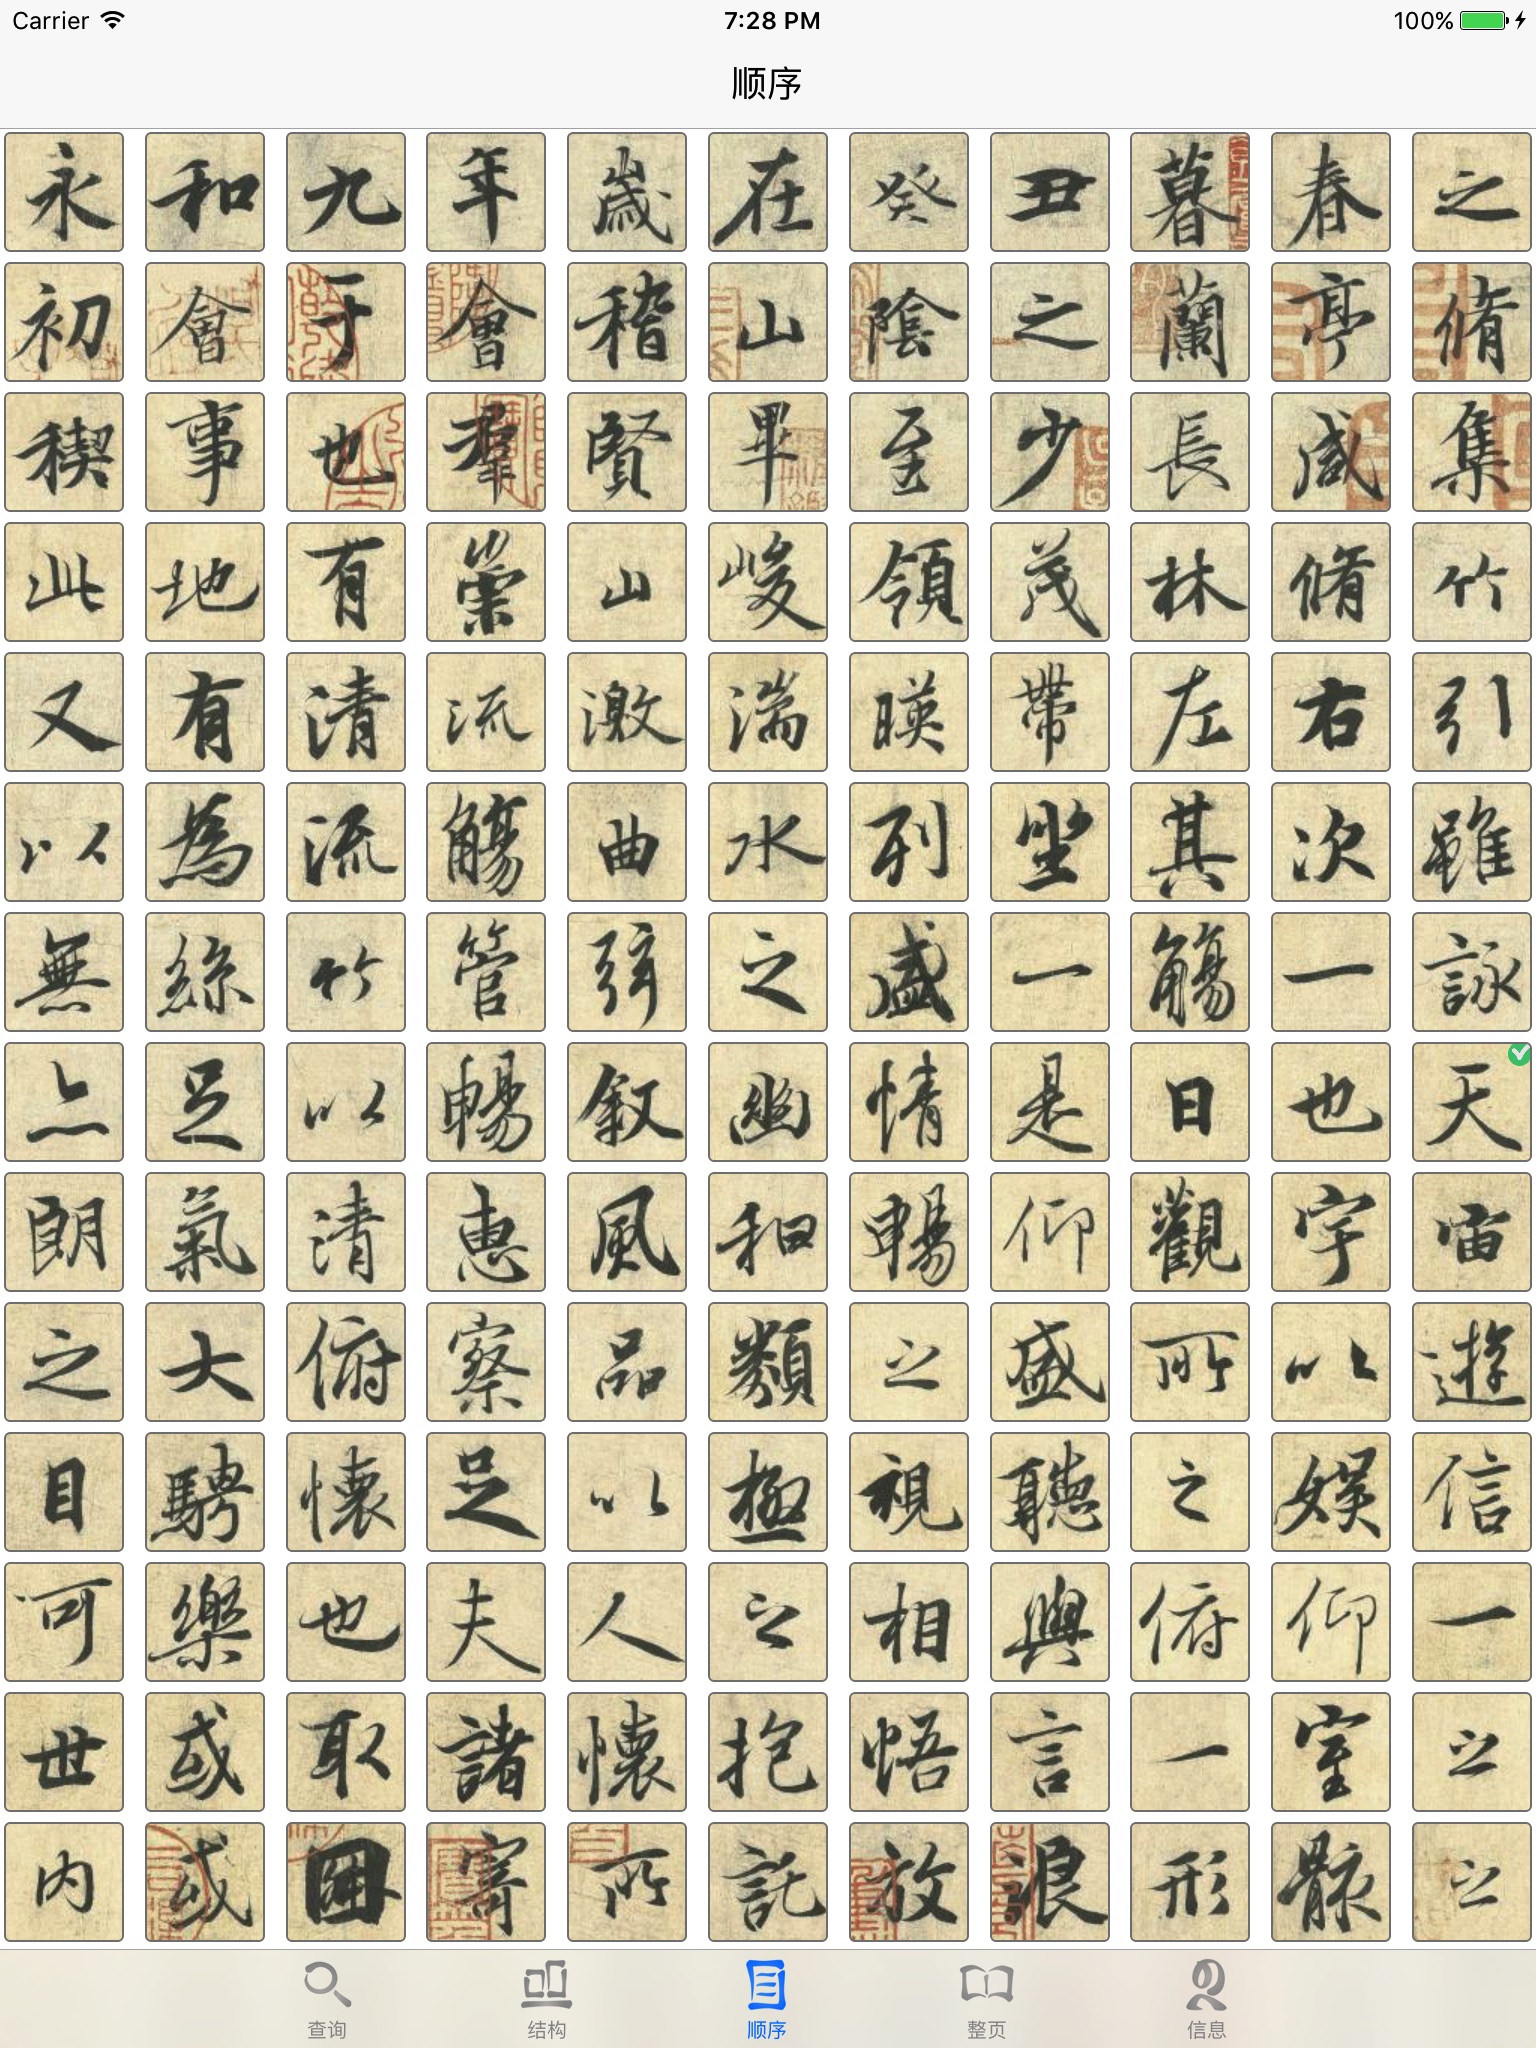 Carrier 7:28 PM 100%
顺序
永和九年歲在癸丑暮春之
初會于會稽山陰之蘭亭脩
稧事也羣賢畢至少長咸集
此地有崇山峻領茂林脩竹
又有清流激湍暎帶左右引
以為流觴曲水列坐其次雖
無絲竹管弦之盛一觴一詠
亦足以暢敘幽情是日也天
朗氣清惠風和暢仰觀宇宙
之大俯察品類之盛所以遊
目騁懷足以極視聽之娛信
可樂也夫人之相與俯仰一
世或取諸懷抱悟言一室之
内或因寄所託放浪形骸之
查询 结构 顺序 整页 信息